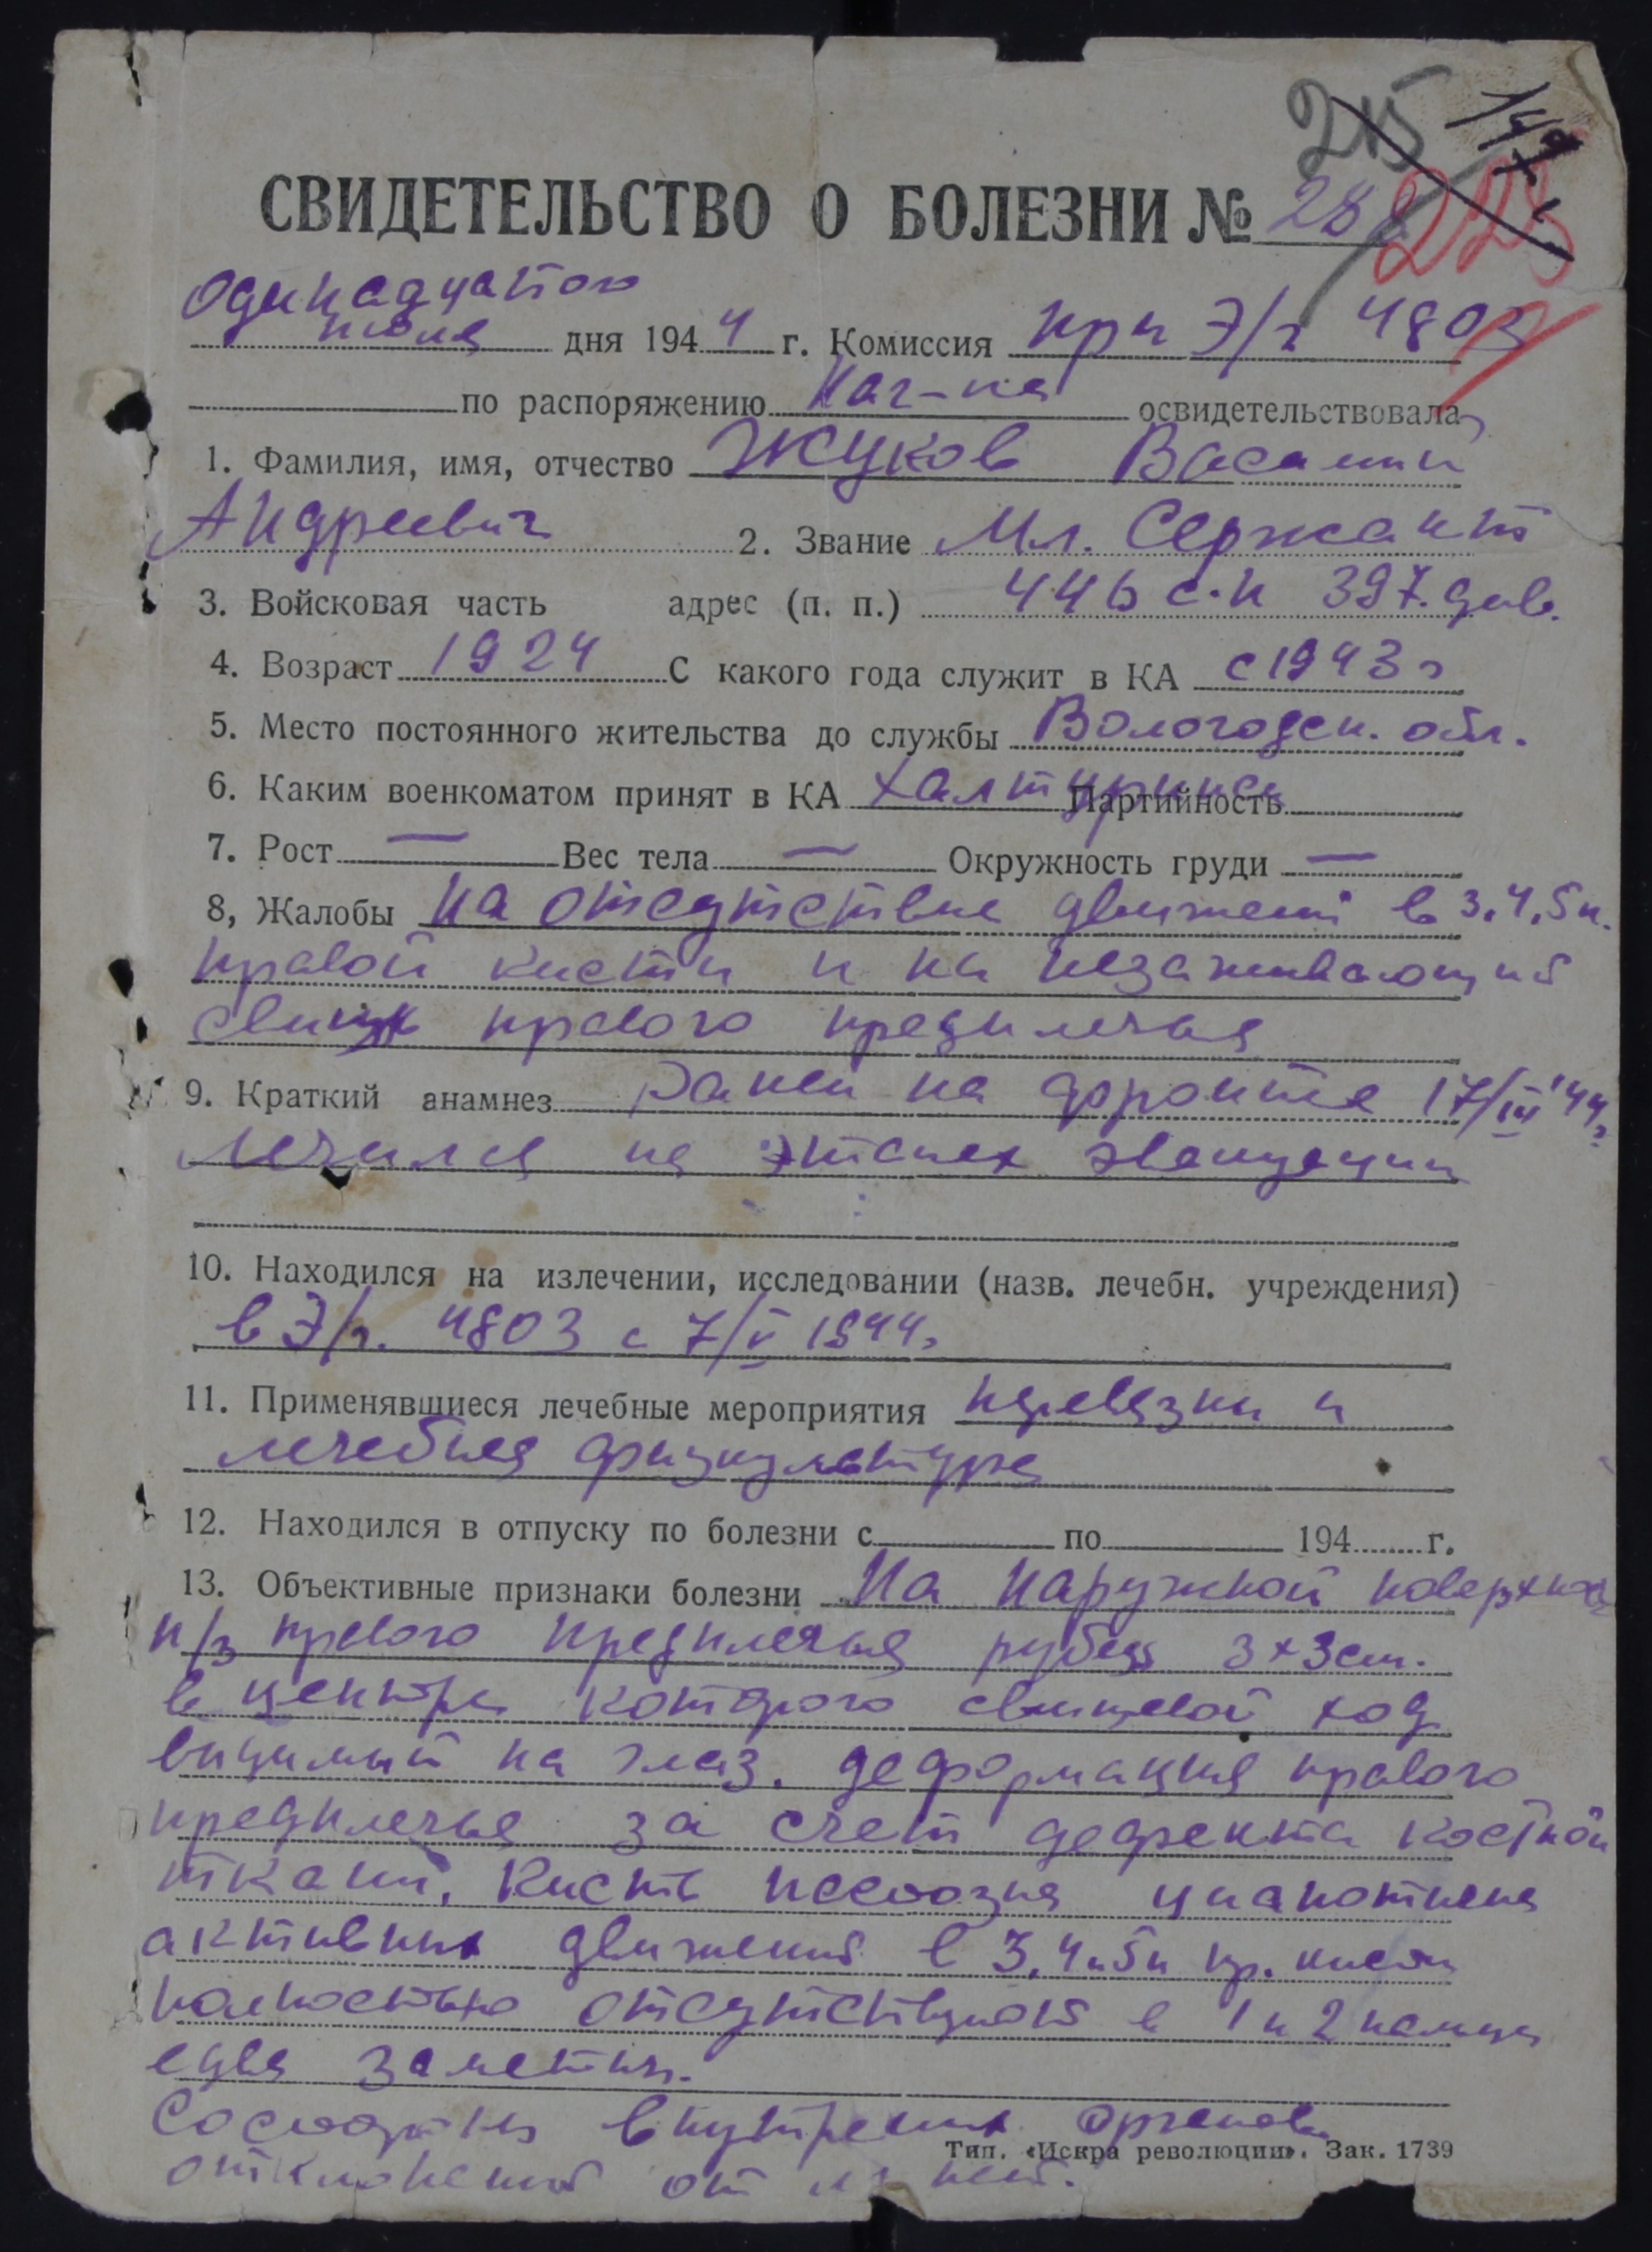 215 149
223
СВИДЕТЕЛЬСТВО О БОЛЕЗНИ № 28
Одинадцатого
июля дня 1944 г. Комиссия при Э/г 4803
по распоряжению Нач-ка освидетельствовала
1. Фамилия, имя, отчество Жуков Василий
Андреевич 2. Звание Мл. Сержант
3. Войсковая часть адрес (п. п.) 446 с.п 397. див.
4. Возраст 1924 С какого года служит в КА с 1943 г
5. Место постоянного жительства до службы Вологодск. обл.
6. Каким военкоматом принят в КА Халтуринск Партийность
7. Рост — Вес тела — Окружность груди —
8, Жалобы На отсутствие движений в 3.4.5 п.
правой кисти и на незаживающий
свищ правого предплечья
9. Краткий анамнез Ранен на фронте 17/III 44г
лечился на этапах эвакуации
10. Находился на излечении, исследовании (назв. лечебн. учреждения)
в Э/г. 4803 с 7/V 1944г
11. Применявшиеся лечебные мероприятия перевязки и
лечебная физкультура
12. Находился в отпуску по болезни с по 194 г.
13. Объективные признаки болезни На наружной поверхнос
н/з правого предплечья рубец 3×3 см.
в центре которого свищевой ход
видимый на глаз. деформация правого
предплечья за счет дефекта костной
ткани. Кисть цианотична
активных движений в 3,4 и 5 п пр. кисти
полностью отсутствуют в 1 и 2 пальцах
едва заметны.
внутренних органов
отклонений от нет.
Тип. «Искра революции». Зак. 1739